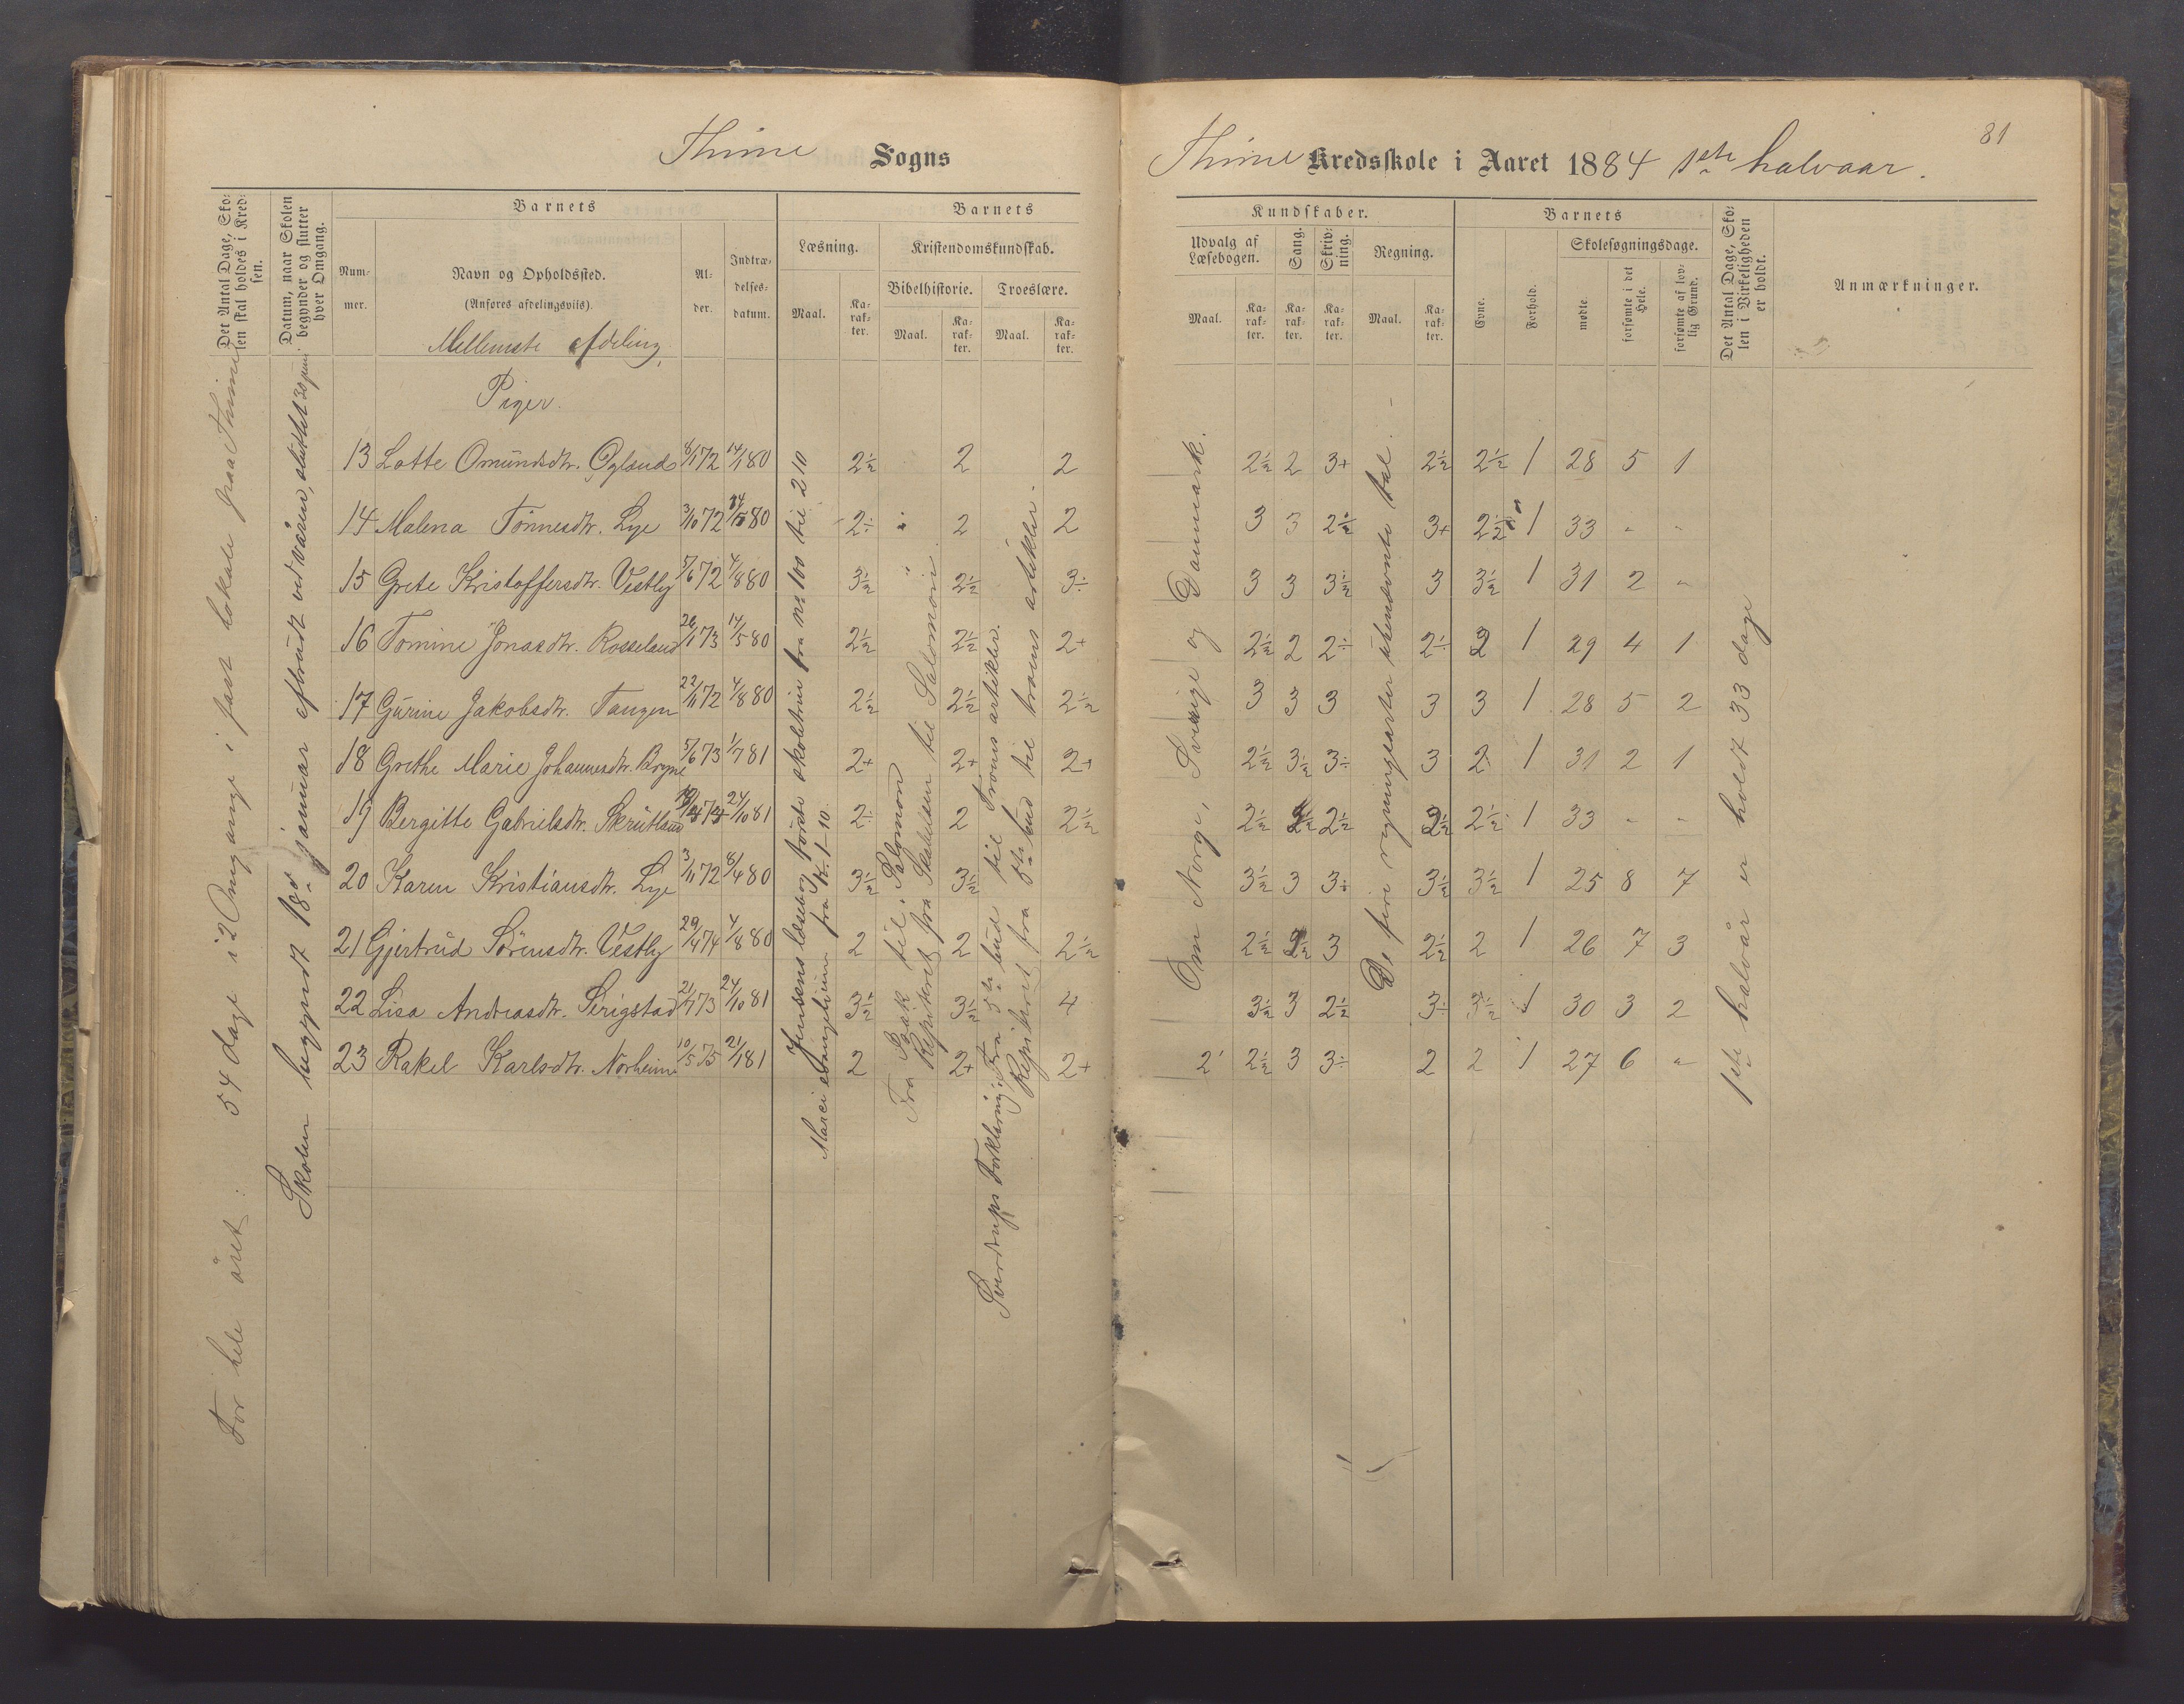 Thime Sogns
Thime Kredsskole i Aaret 1884 1ste halvaar.
81
Det Antal Dage, Skolen skal holdes i Kredsen.
Datum, naar Skolen begynder og slutter hver Omgang.
Barnets
Nummer.
Navn og Opholdssted.
(Anføres afdelingsviis).
Alder.
Indtrædelsesdatum.
Barnets
Læsning.
Kristendomskundskab.
Bibelhistorie.
Troeslære.
Maal.
Karakter.
Maal.
Karakter.
Maal.
Karakter.
Kundskaber.
Udvalg af Læsebogen.
Sang.
Skrivning.
Regning.
Maal.
Karakter.
Karakter.
Karakter.
Maal.
Karakter.
Barnets
Evne.
Forhold.
Skolesøgningsdage.
mødte.
forsømte i det Hele.
forsømte af lovlig Grund.
Det Antal Dage, Skolen i Virkeligheden er holdt.
Anmærkninger.
Mellemste Afdeling,
Piger.
For hele året: 54 dage i 2 Omgange i fast lokale paa Thime
Skolen begyndt 18de januar afbrudt ved våren, sluttet 30 juni
Jensens læsebog første skoletrin fra no 100 til 210
Marci evangelium fra K. 1-10.
Fra Isak til Salomon
Repeteret fra Skabelsen til Salomon
Sverdrups Forklaring: Fra 5te bud til Troens artikler.
Repeteret fra 5te bud til troens artikler.
Om Norge, Sverige og Danmark.
De fire regningsarter ubenævnte tal.
1ste halvår er holdt 33 dage
13 Lotte Omundsdtr. Øgland 6/1 72 14/1 80 2½ 2 2 2½ 2 3+ 2½ 2½ 1 28 5 1
14 Malena Tønnesdtr. Lye 3/10 72 80 2÷ 2 2 3 3 2½ 3+ 2½ 1 33 - -
15 Grete Kristoffersdtr. Vestly 5/6 72 4/8 80 3½ 2½ 3÷ 3 3 3½ 3 3½ 1 31 2 -
16 Tomine Jonasdtr. Rosseland 26/1 73 14/5 80 2½ 2½ 2+ 2½ 2 2÷ 2÷ 2 1 29 4 1
17 Gurine Jakobsdtr. Tangen 22/11 72 4/8 80 2½ 2½ 2½ 3 3 3 3 3 1 28 5 2
18 Grethe Marie Johannesdtr. Bryne 5/6 73 1/7 81 2+ 2+ 2+ 2½ 3½ 3÷ 3 2 1 31 2 1
19 Bergitte Gabrielsdtr. Skrutland 24/10 81 2÷ 2 2½ 2½ 2½ 2½ 2½ 2½ 1 33 - -
20 Karen Kristiansdtr. Lye 3/11 72 8/4 80 3½ 3½ 3½ 3 3÷ 3½ 3½ 1 25 8 7
21 Gjertrud Sørensdtr. Vestly 29/4 74 4/8 80 2 2 2½ 2½ 2½ 3 2½ 2 1 26 7 3
22 Lisa Andreasdtr. Serigstad 21/7 73 24/10 81 3½ 3½ 4 3½ 3 2½ 3÷ 3½ 1 30 3 2
23 Rakel Karlsdtr. Norheim 10/5 75 21/1 81 2 2+ 2+ 2 2½ 3 3÷ 2 2 1 27 6 -